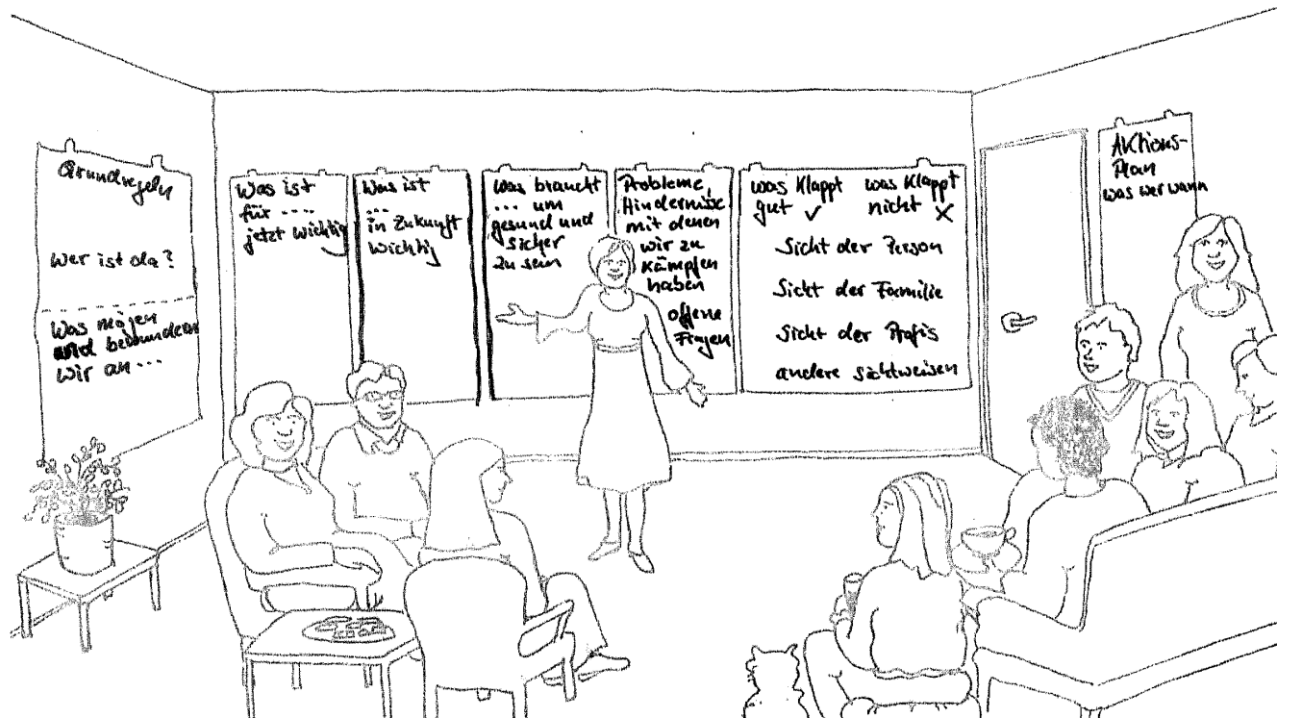 Grundregeln
Wer ist da?
Was mögen
und bewundern
wir an ...
Was ist
für ....
jetzt wichtig
Was ist
...
in Zukunft
wichtig
Was braucht
... um
gesund und
sicher
zu sein
Probleme,
Hindernisse
mit denen
wir zu
kämpfen
haben
offene
Fragen
was klappt
gut ✓
was klappt
nicht X
Sicht der Person
Sicht der Familie
Sicht der Profis
andere Sichtweisen
Aktions-
Plan
was wer wann